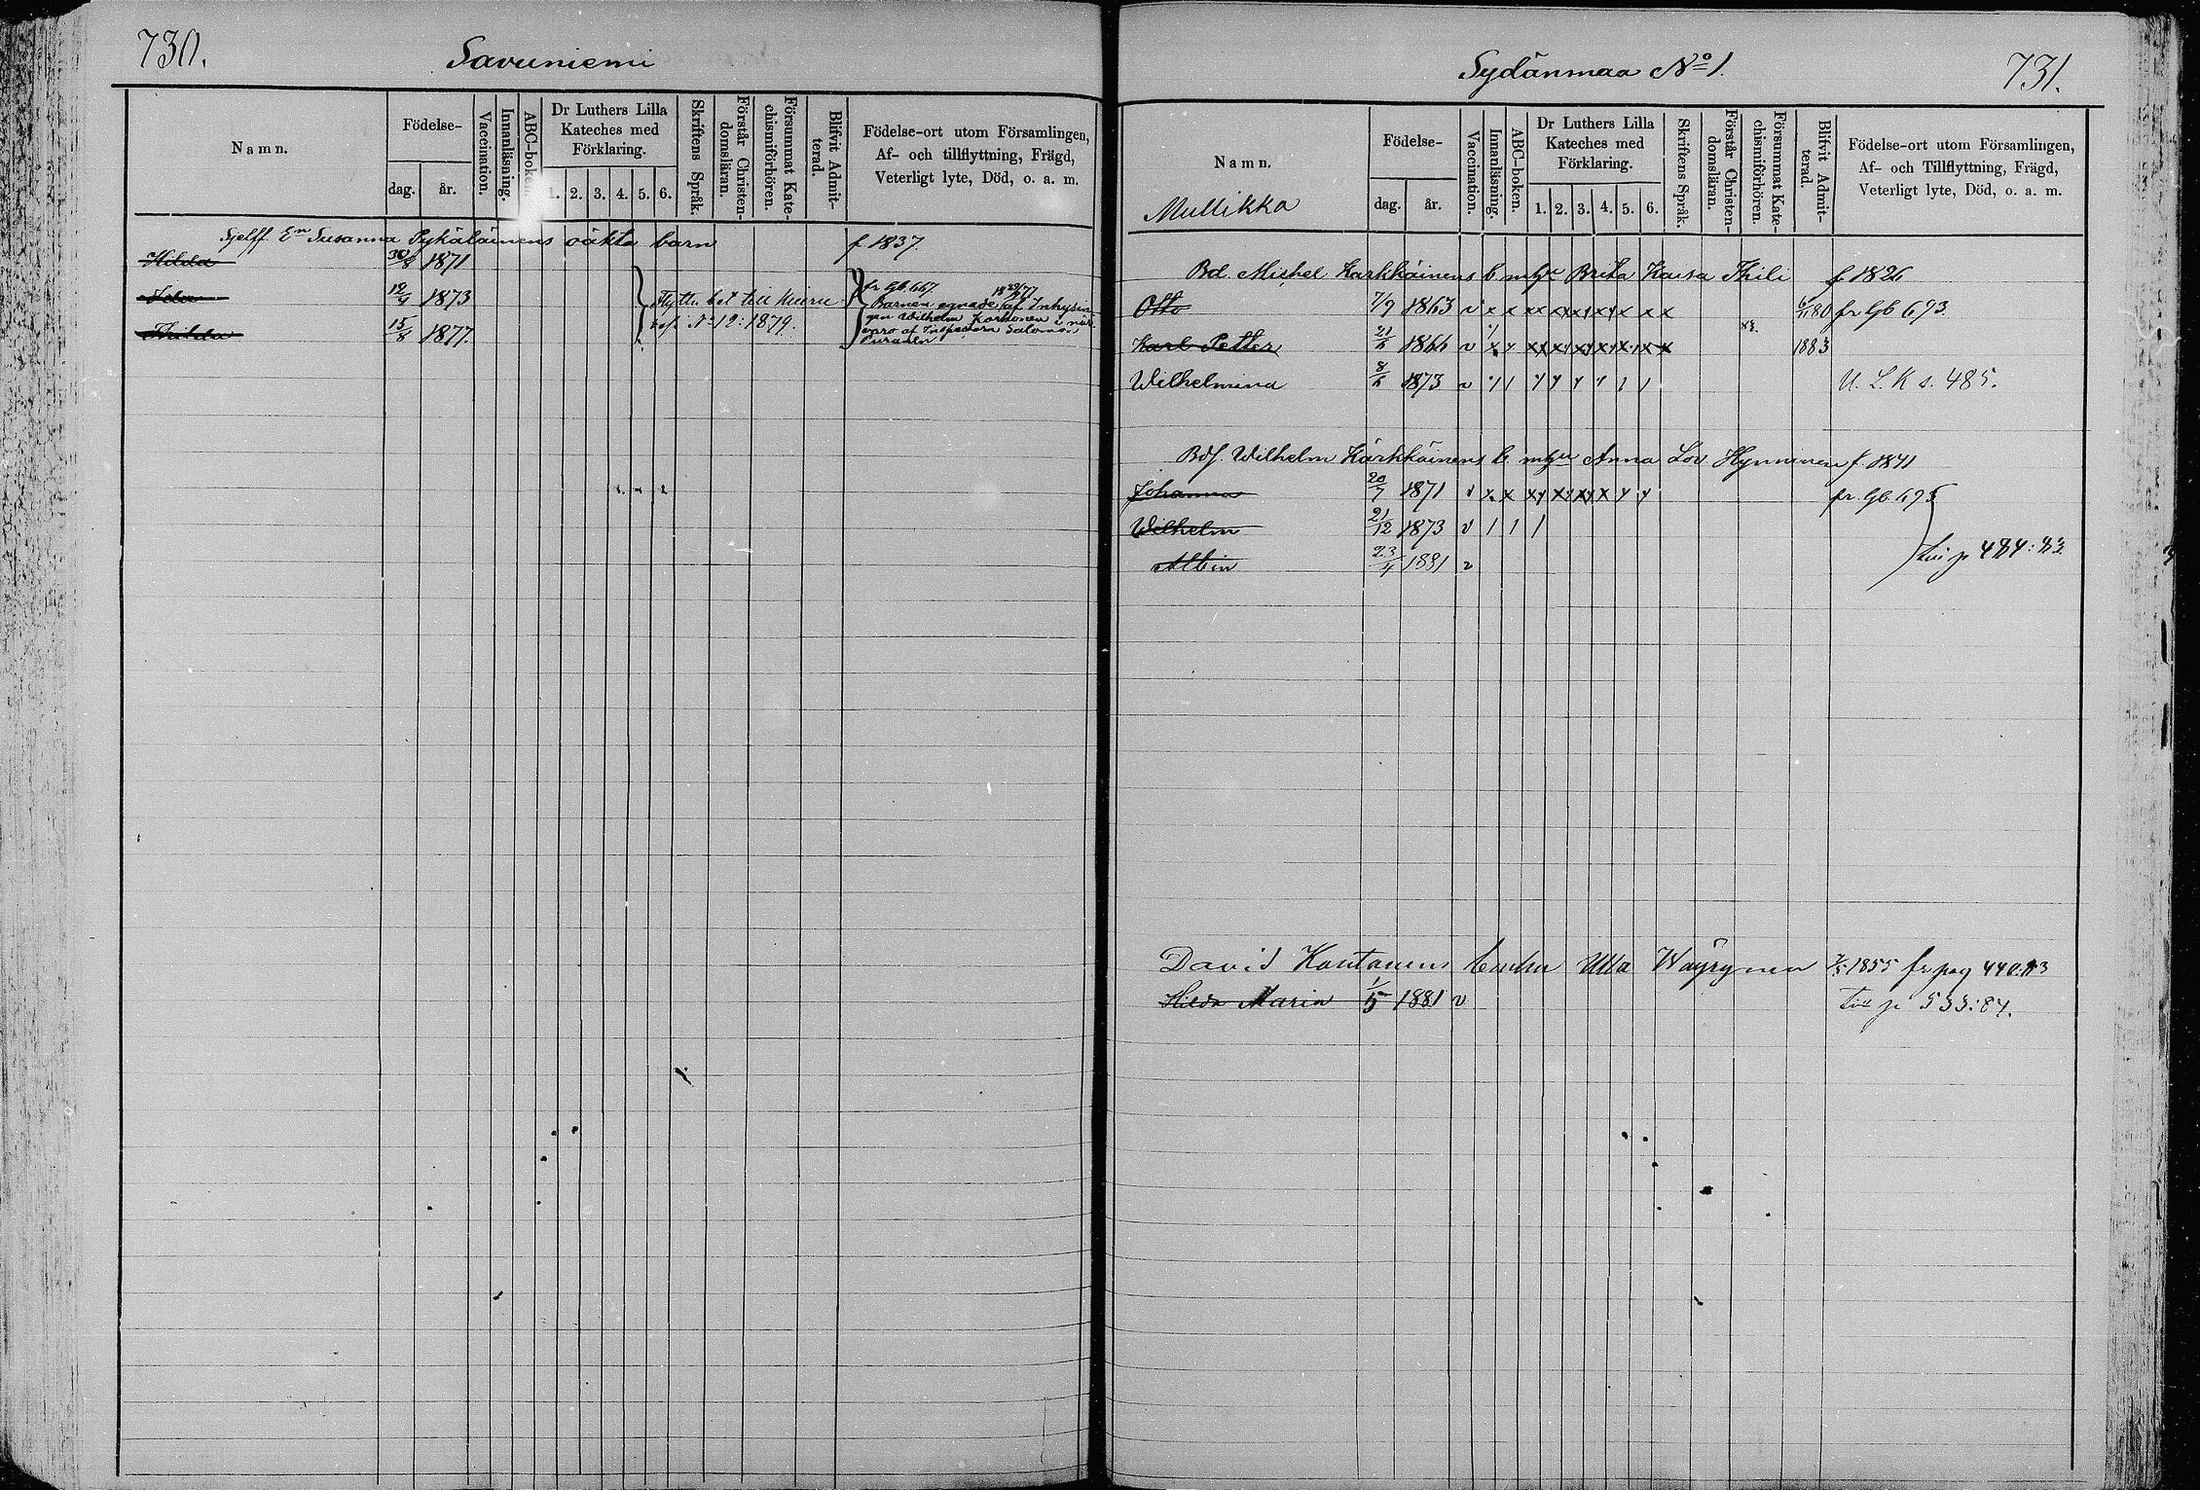 730.
Savuniemi
Namn.
Födelse-
dag.
år.
Vaccination.
Innanläsning.
ABC-boken.
Dr Luthers Lilla
Kateches med
Förklaring.
1. 2. 3. 4. 5. 6.
Skriftens Språk.
Förstår Christen-
domsläran.
Försummat Kate-
chismiförhören.
Blifvit Admit-
terad.
Födelse-ort utom Församlingen,
Af- och tillflyttning, Frägd,
Veterligt lyte, Död, o. a. m.
Sjelff. En Susanna Pykäläinens oäkta barn f 1837.
Hilda 30/8 1871
fr Gb. 667
Ida 12/9 1873
Flytt. bet till
Barnen egnade af Inhysin-
gen Wilhelm Karhonen i när-
No 12: 1879.
varo af Salomon
Thilda 15/8 1877.
Puranen
731.
Sydänmaa No 1.
Namn.
Mullikka
Födelse-
dag.
år.
Vaccination.
Innanläsning.
ABC-boken.
Dr Luthers Lilla
Kateches med
Förklaring.
1. 2. 3. 4. 5. 6.
Skriftens Språk.
Förstår Christen-
domsläran.
Försummat Kate-
chismiförhören.
Blifvit Admit-
terad.
Födelse-ort utom Församlingen,
Af- och Tillflyttning, Frägd,
Veterligt lyte, Död, o. a. m.
Bd. Michel Karkkäinens b. m hu Brita Kaisa Thili f 1826
Otto 7/9 1863 v x x x x x x x x x x 80 fr Gb 693.
Karl Petter 21/6 1866 v x x x x x x x x x 1883
Wilhelmina 8/6 1873 v U. L. K s. 485.
Bdf. Wilhelm Kärkkäinens b. m hu Anna Lov Hynninen f. 1841
Johanna 20/7 1871 v x x x x x x fr. Gb. 695
Wilhelm 21/12 1873 v / / /
Albin 23/4 1881 v
till p 484: 83.
David Kontanens hustru Ulla Wäyrynen 1855 fr pag 440.83
Hilda Maria 1/5 1881 v till p 533:84.